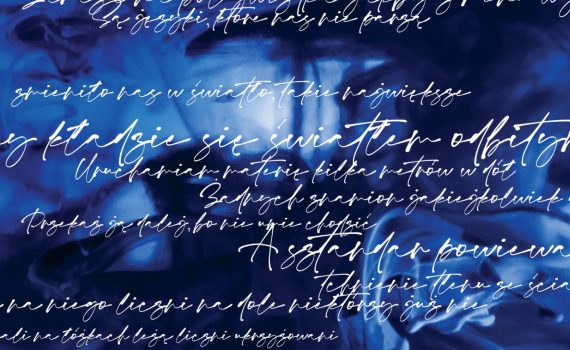 Są języki, które nas nie parzą
zmieniło nas w światło, takie największe
y kładzie się światłem odbitym
Uruchamiam materię kilka metrów w dół
Żadnych znamion jakiegokolwiek
Przekaż ją dalej, bo nie umie chodzić
A sztandar powiewa
Tchnienie tlenu ze ścia
na niego liczni na dole niektórzy już nie
ali na łóżkach leżą liczni ukrzyżowani